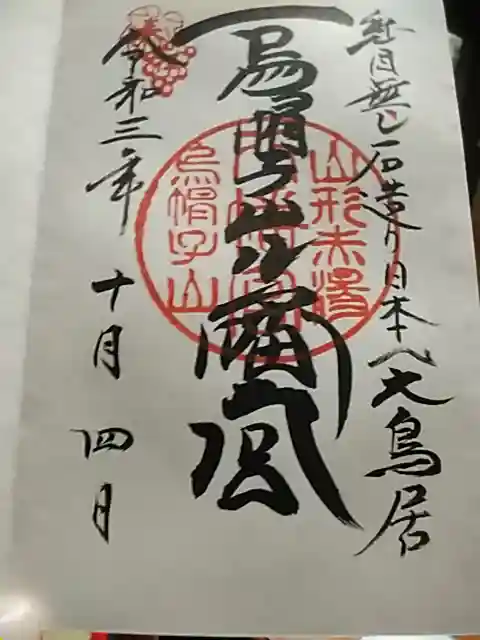 継目無し石造り日本一大鳥居
烏帽子山八幡宮
令和三年十月四日
山形赤湯
烏帽子山